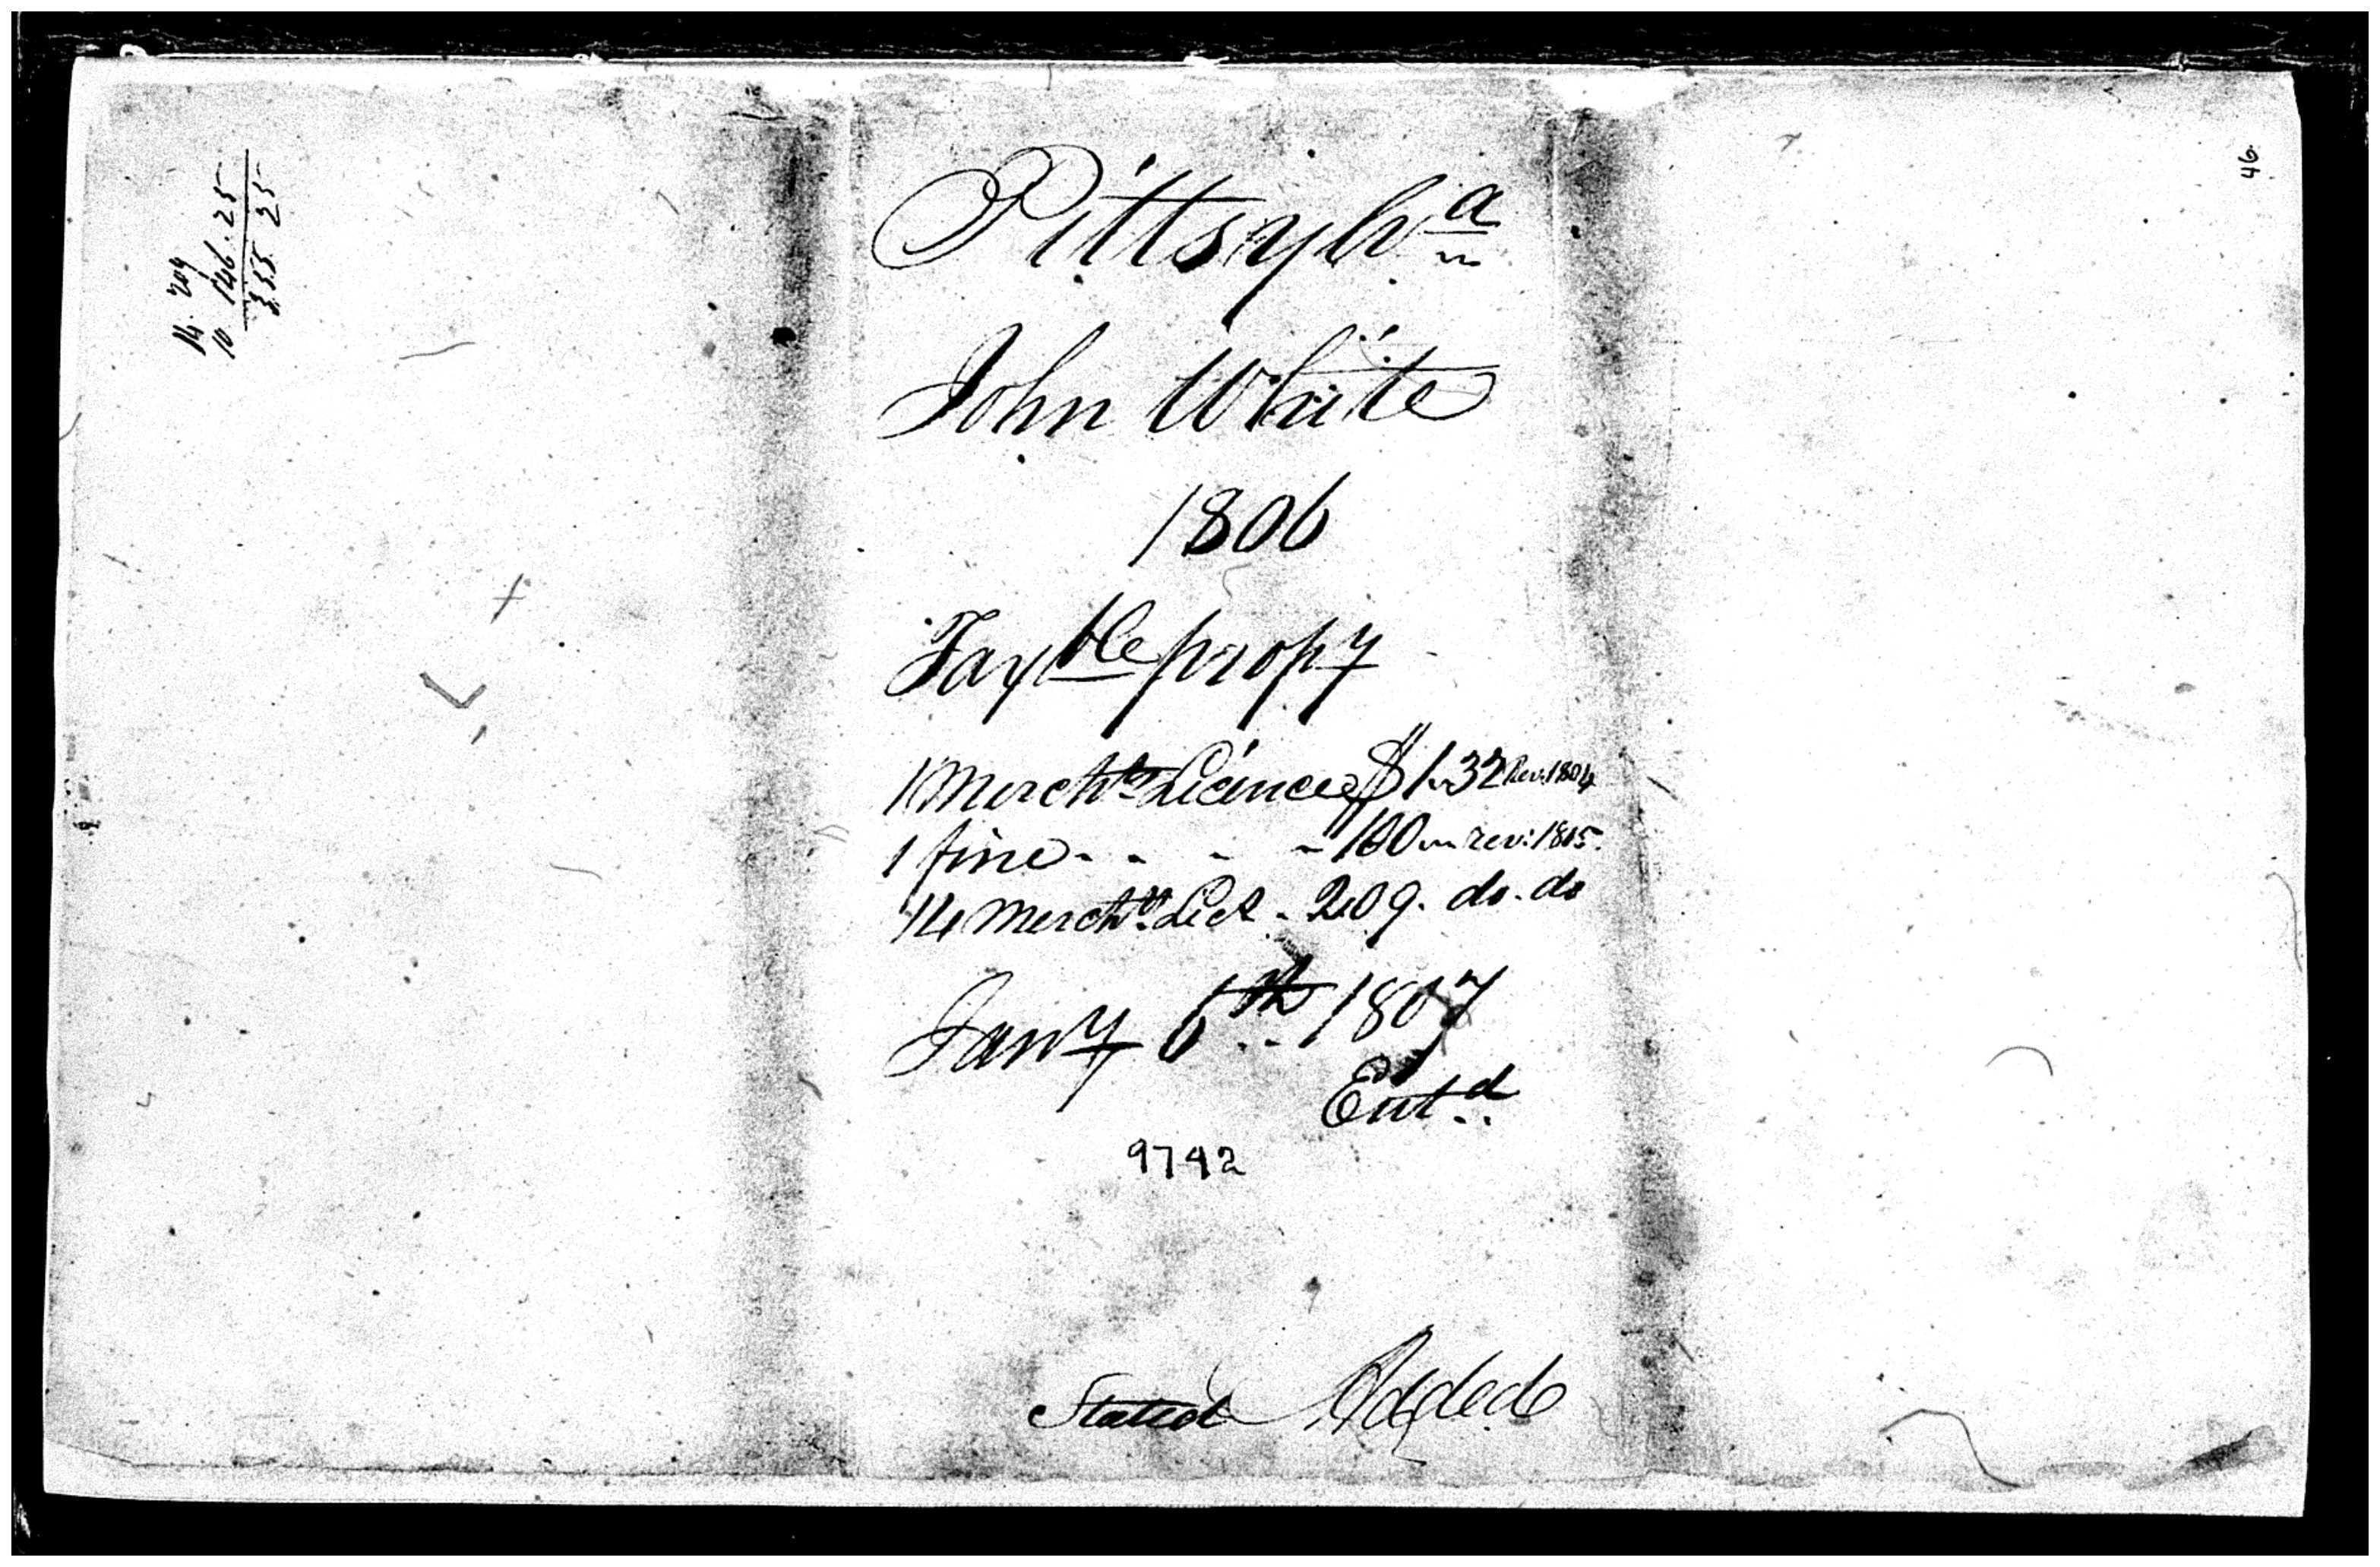 14. 209
10 146.25
355.25
46.
Pittsylvª
John White
1806
Taxble propy
1 Merchts Licence $ 1..32 Rev: 1804
1 fine - - - - 100 .. rev: 1805.
14 Merchts Lics - 209. do. do
Jany 6th 1807
Entd
9792
Stated Added